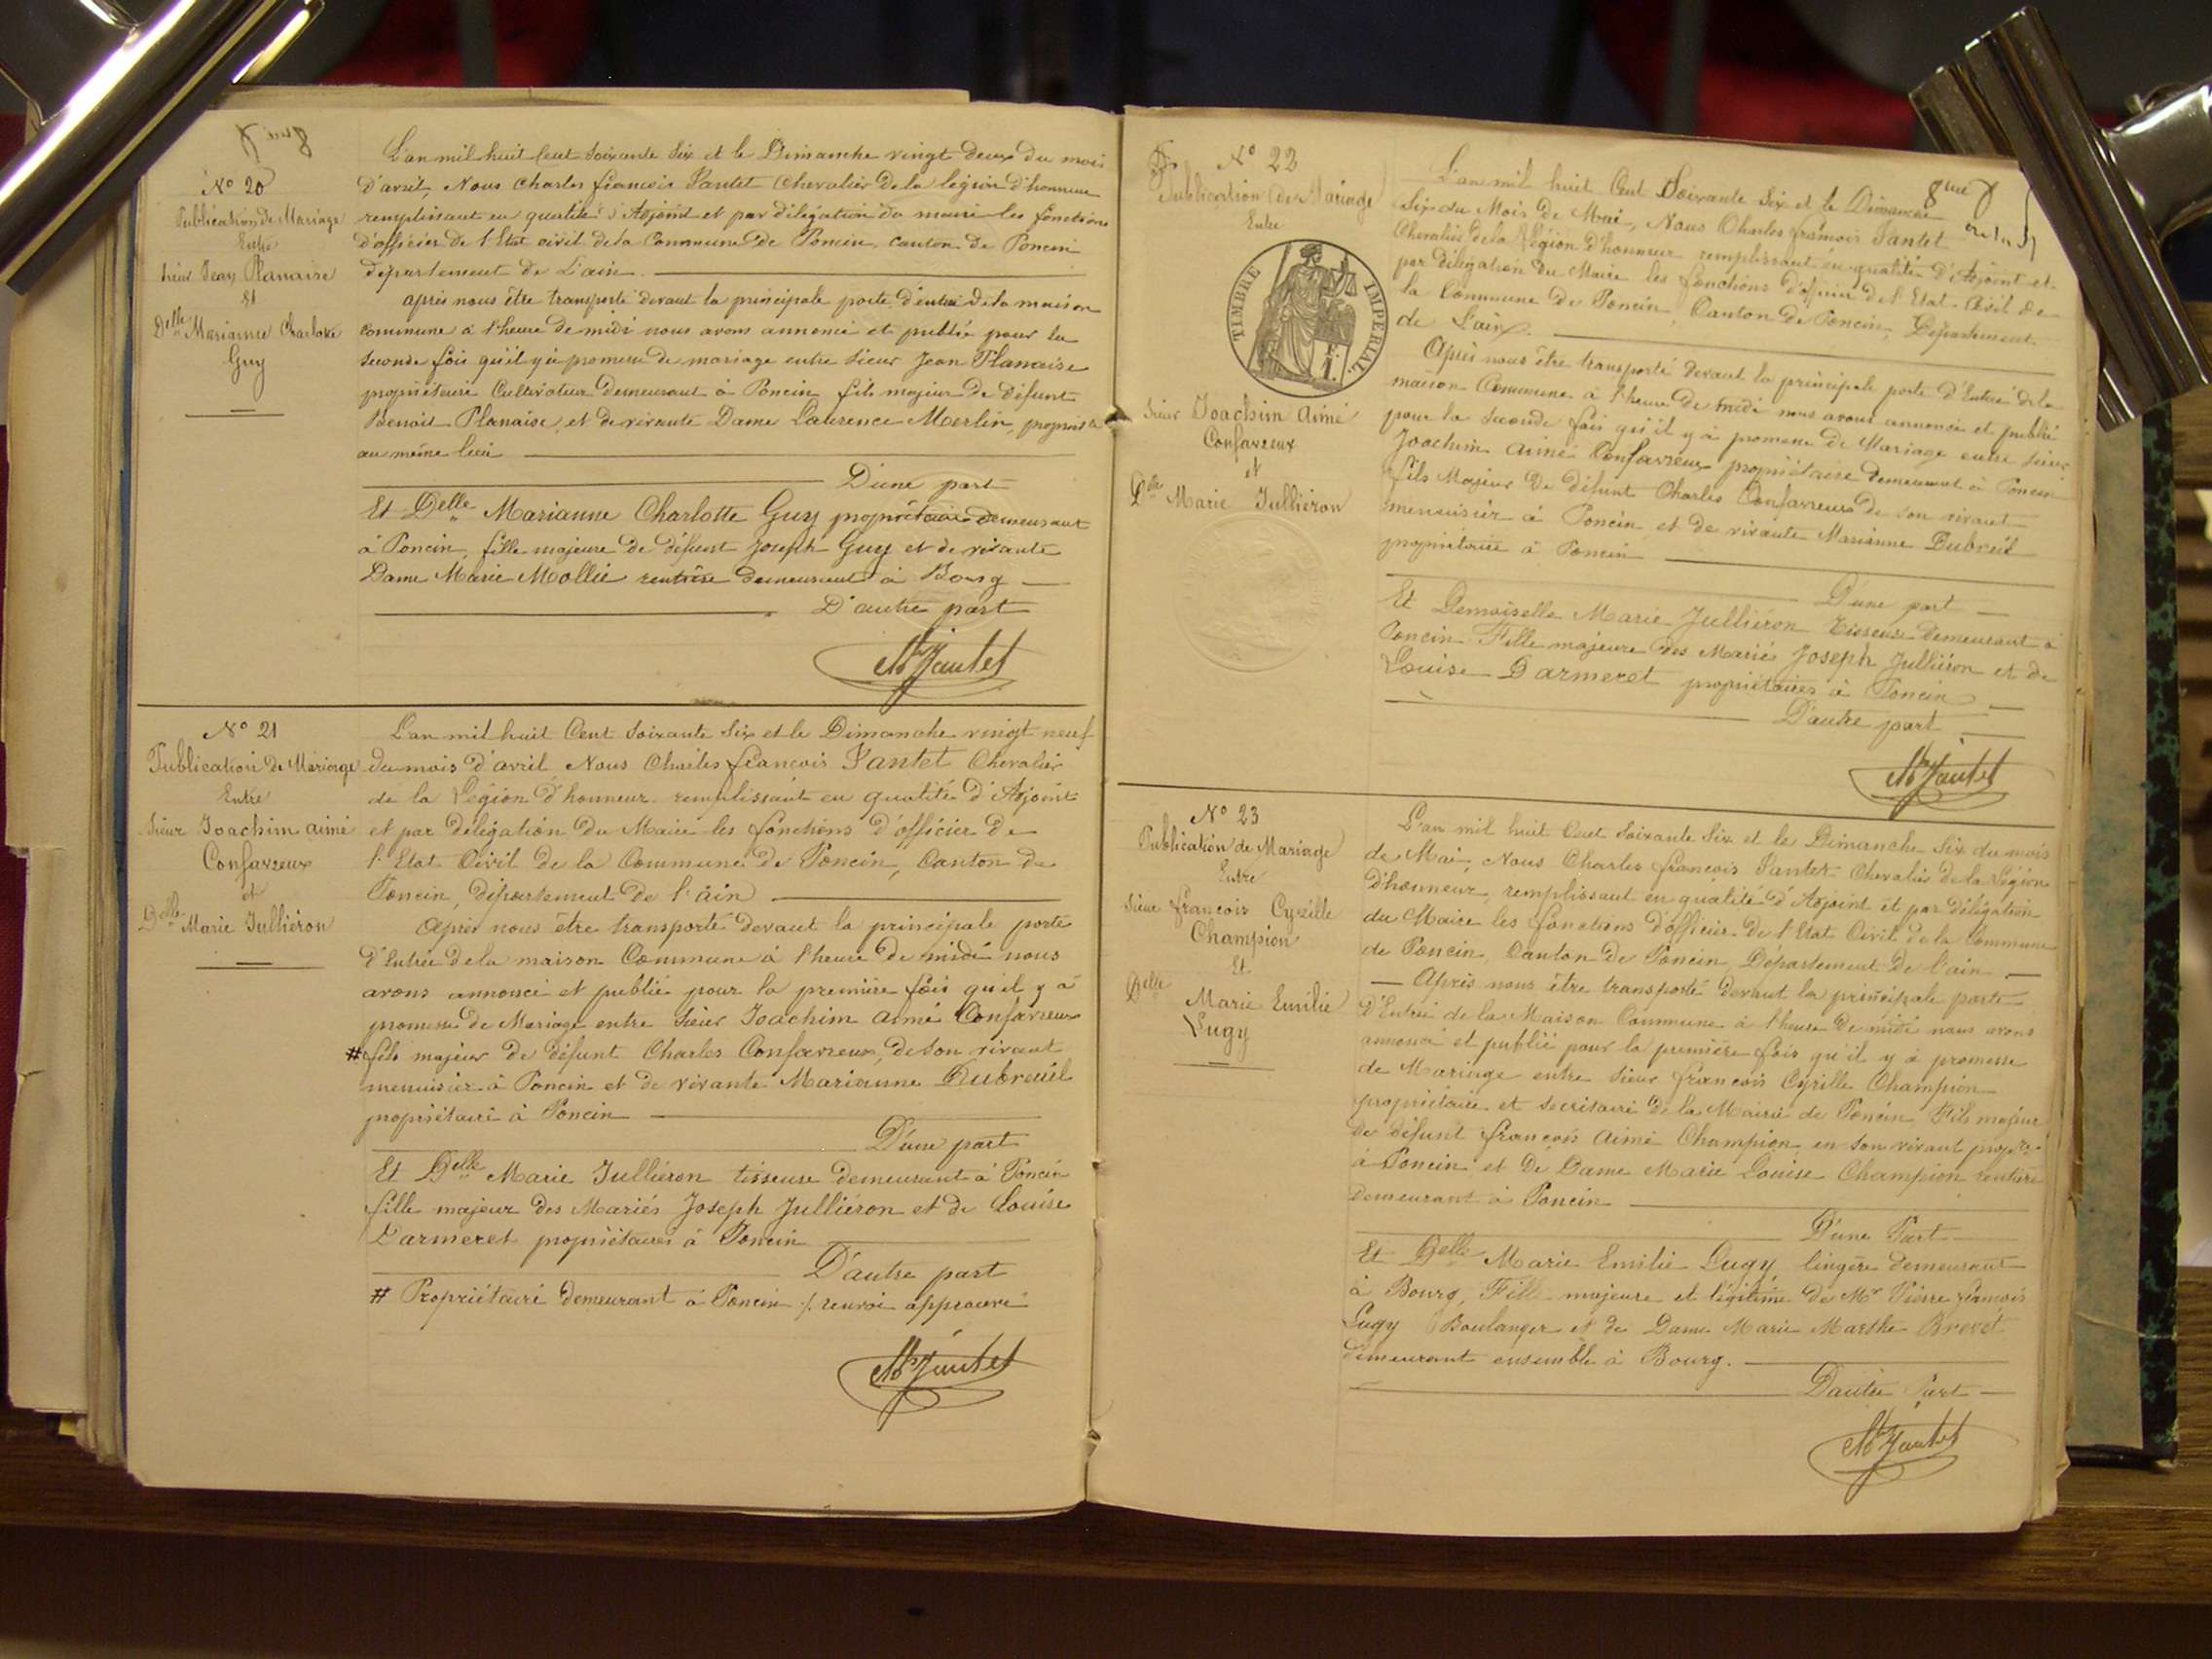 N° 20
Publication de Mariage
Entre
Sieur Jean Planaise
Et
Delle Marianne Charlotte
Guy
L'an mil huit Cent Soixante Six et le Dimanche vingt deux du mois
d'avril, Nous Charles francois Jantet Chevalier de la légion d'honneur
remplissant en qualité d'Adjoint et par délégation du maire les fonctions
d'officier de l'Etat civil de la Commune de Poncin, canton de Poncin
département de L'ain.
après nous être transporté devant la principale porte d'entrée de la maison
Commune à l'heure de midi nous avons annoncé et publié pour la
Seconde fois qu'il y à promesse de mariage entre Sieur Jean Planaise
propriétaire Cultivateur Demeurant à Poncin fils majeur de défunt
Benoit Planaise et de vivante Dame Laurence Merlin, propriet
au même lieu
D'une part
Et Delle Marianne Charlotte Guy propriétaire demeurant
à Poncin, fille majeure de défunt Joseph Guy et de vivante
Dame Marie Mollie rentière demeurant à Bourg
D'autre part
Ch Jantet
N° 21
Publication de Mariage
Entre
Sieur Joachim aimé
Confavreux
et
Delle Marie Jullieron
L'an mil huit Cent Soixante Six et le Dimanche vingt neuf
du mois d'avril Nous Charles francois Jantet Chevalier
de la Légion d'honneur remplissant en qualité d'Adjoint
et par délégation du Maire les fonctions d'officier de
l'Etat Civil de la Commune de Poncin, Canton de
Poncin, département de l'ain
Après nous être transporté devant la principale porte
d'Entrée de la maison Commune à l'heure de midi nous
avons annoncé et publié pour la première fois qu'il y à
promesse de Mariage entre Sieur Joachim aimé Confavreux
# fils majeur de défunt Charles Confavreux, de son vivant
menuisier à Poncin et de vivante Marianne Dubreuil
propriétaire à Poncin
D'une part
Et Delle Marie Jullieron tisseuse demeurant à Poncin
fille majeur des Mariés Joseph Julliéron et de Louise
Darmeret propriétaires à Poncin
D'autre part
# Propriétaire demeurant à Poncin /. renvoi approuvé
Ch Jantet
8me
N° 22
Publication de Mariage
Entre
TIMBRE IMPERIAL
Sieur Joachim Aimé
Confavreux
et
Delle Marie Jullieron
L'an mil huit Cent Soixante Six et le Dimanche
Six du Mois de Mai, Nous Charles francois Jantet
Chevalier de la Légion d'honneur remplissant en qualité d'Adjoint et
par délégation du Maire les fonctions d'officier de l'Etat Civil de
la Commune de Poncin, Canton de Poncin, Département
de L'ain.
Après nous être transporté devant la principale porte d'Entrée de la
maison Commune à l'heure de midi nous avons annoncé et publié
pour la Seconde fois qu'il y à promesse de Mariage entre Sieur
Joachim aimé Confavreux propriétaire demeurant à Poncin
fils Majeur de défunt Charles Confavreux de son vivant
menuisier à Poncin et de vivante Marianne Dubreuil
propriétaire à Poncin
D'une part
Et Demoiselle Marie Julliéron Tisseuse demeurant à
Poncin Fille majeure des Mariés Joseph Julliéron et de
Louise Darmeret propriétaires à Poncin
D'autre part
Ch Jantet
N° 23
Publication de Mariage
Entre
Sieur francois Cyrille
Champion
Et
Delle
Marie Emilie
Lugy
L'an mil huit Cent Soixante Six et le Dimanche Six du mois
de Mai, Nous Charles francois Jantet Chevalier de la Légion
d'honneur, remplissant en qualité d'Adjoint et par délégation
du Maire les fonctions d'officier de l'Etat Civil de la Commune
de Poncin, Canton de Poncin, Département de l'ain
Après nous être transporté devant la principale porte
d'Entrée de la Maison Commune à l'heure de midi nous avons
annoncé et publié pour la première fois qu'il y à promesse
de Mariage entre Sieur francois Cyrille Champion
propriétaire et Secrétaire de la Mairie de Poncin Fils majeur
de défunt francois Aimé Champion en son vivant propre
à Poncin et de Dame Marie Louise Champion rentière
demeurant à Poncin
D'une Part
Et Delle Marie Emilie Lugy lingère demeurant
à Bourg, Fille majeure et légitime de Mr Pierre francois
Lugy Boulanger et de Dame Marie Marthe Brevet
demeurant ensemble à Bourg.
D'autre Part
Ch Jantet